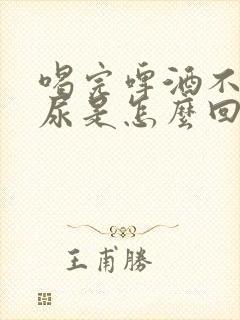 喝完啤酒不
尿是怎麼回
王甫勝